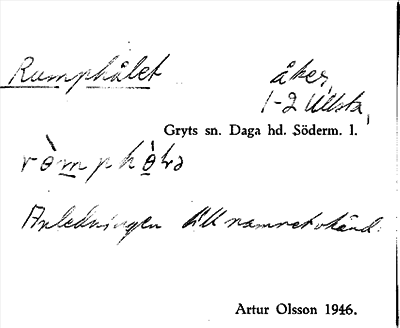 Rumphålet åker,
1-2 Ullsta,
Gryts sn. Daga hd. Söderm. l.
ròmphò̱lə
Anledningen till namnet okänd.
Artur Olsson 1946.